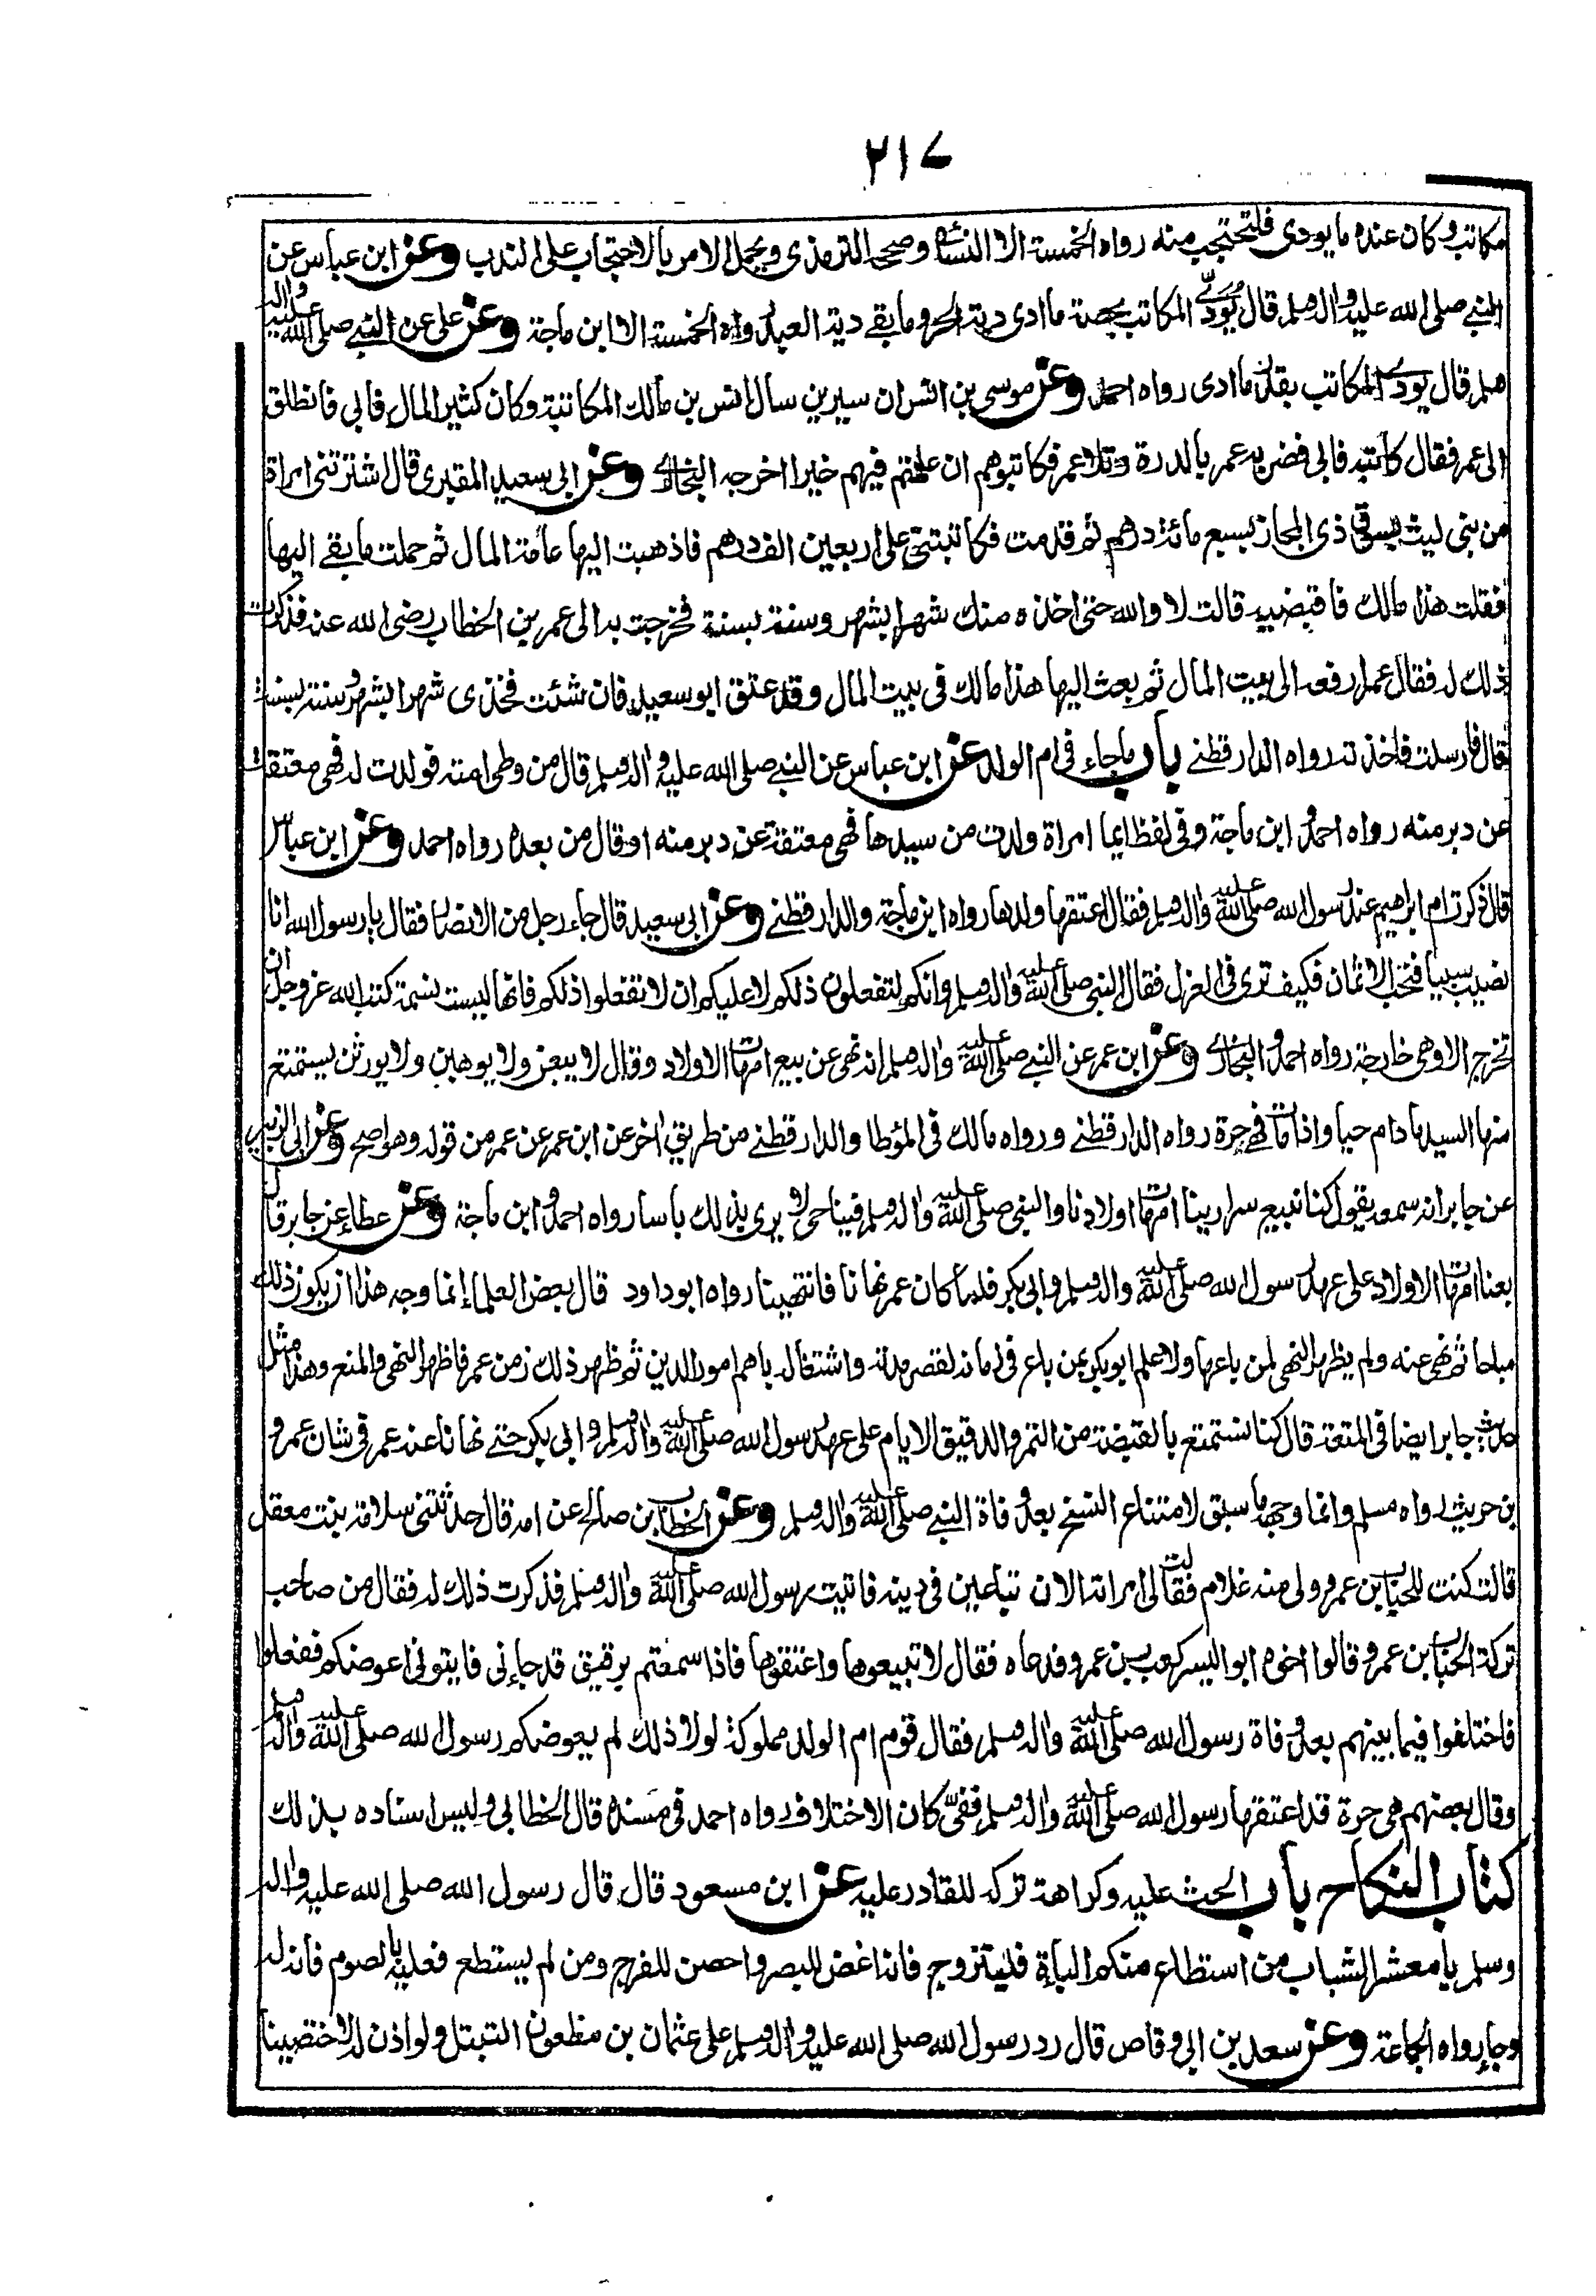 ٢١٧
مكاتب وكان عنده ما يودى فلتحتجب منه رواه الخمسة الا النسائي وصححه الترمذى ويحمل الامر بالاحتجاب على الندب وعن ابن عباس عن
النبي صلى الله عليه واله وسلم قال يودى المكاتب بحصة ما ادى دية الحر وما بقى دية العبد رواه الخمسة الا ابن ماجة وعن على عن النبي صلى الله عليه واله
وسلم قال يودى المكاتب بقدر ما ادى رواه احمد وعن موسى بن انس ان سيرين سال انس بن مالك المكاتبة وكان كثير المال فابى فانطلق
الى عمر فقال كاتبه فابى فضربه عمر بالدرة وتلا عمر فكاتبوهم ان علمتم فيهم خيرا اخرجه البخارى وعن ابى سعيد المقبرى قال اشترتنى امراة
من بنى ليث بسوق ذى المجاز بسبع مائة درهم ثم قدمت فكاتبتنى على اربعين الف درهم فاذهبت اليها عامة المال ثم حملت ما بقى اليها
فقلت هذا مالك فاقبضيه قالت لا والله حتى اخذه منك شهرا بشهر وسنة بسنة فخرجت به الى عمر بن الخطاب رضى الله عنه فذكرت
ذلك له فقال عمر ارفعه الى بيت المال ثم بعث اليها هذا مالك فى بيت المال وقد عتق ابو سعيد فان شئت فخذى شهرا بشهر وسنة بسنة
قال فارسلت فاخذته رواه الدارقطنى باب ما جاء فى ام الولد عن ابن عباس عن النبي صلى الله عليه واله وسلم قال من وطى امته فولدت له فهى معتقة
عن دبر منه رواه احمد وابن ماجة وفى لفظ ايما امراة ولدت من سيدها فهى معتقة عن دبر منه او قال من بعده رواه احمد وعن ابن عباس
قال ذكرت ام ابراهيم عند رسول الله صلى الله عليه واله وسلم فقال اعتقها ولدها رواه ابن ماجة والدارقطنى وعن ابى سعيد قال جاء رجل من الانصار فقال يا رسول الله انا
نصيب سبيا فنحب الاثمان فكيف ترى فى العزل فقال النبى صلى الله عليه واله وسلم وانكم لتفعلون ذلكم لا عليكم ان لا تفعلوا ذلكم فانها ليست نسمة كتب الله عز وجل ان
تخرج الا وهى خارجة رواه احمد والبخارى وعن ابن عمر عن النبى صلى الله عليه واله وسلم انه نهى عن بيع امهات الاولاد وقال لا يبعن ولا يوهبن ولا يورثن يستمتع
منها السيد ما دام حيا واذا مات فهى حرة رواه الدارقطنى ورواه مالك فى المؤطا والدارقطنى من طريق اخر عن ابن عمر عن عمر من قوله وهو اصح وعن ابى الزبير
عن جابر انه سمعه يقول كنا نبيع سرارينا امهات اولادنا والنبى صلى الله عليه واله وسلم فينا حى لا يرى بذلك باسا رواه احمد وابن ماجة وعن عطاء عن جابر قال
بعنا امهات الاولاد على عهد رسول الله صلى الله عليه واله وسلم وابى بكر فلما كان عمر نهانا فانتهينا رواه ابو داود قال بعض العلماء انما وجه هذا ان يكون ذلك
مباحا ثم نهى عنه ولم يظهر النهى لمن باعها ولا علم ابو بكر بمن باع فى زمانه لقصر مدته واشتغاله باهم امور الدين ثم ظهر ذلك زمن عمر فاظهر النهى والمنع وهذا مثل
حديث جابر ايضا فى المتعة قال كنا نستمتع بالقبضة من التمر والدقيق الايام على عهد رسول الله صلى الله عليه واله وسلم وابى بكر حتى نهانا عنه عمر فى شان عمرو
بن حريث رواه مسلم وانما وجهه ما سبق لامتناع النسخ بعد وفاة النبى صلى الله عليه واله وسلم وعن الخطاب بن صالح عن امه قال حدثتنى سلامة بنت معقل
قالت كنت للحباب بن عمرو ولى منه غلام فقالت لى امراته الان تباعين فى دينه فاتيت رسول الله صلى الله عليه واله وسلم فذكرت ذلك له فقال من صاحب
تركة الحباب بن عمرو قالوا اخوه ابو اليسر كعب بن عمرو فدعاه فقال لا تبيعوها واعتقوها فاذا سمعتم برقيق قد جاءنى فايتونى اعوضكم ففعلوا
فاختلفوا فيما بينهم بعد وفاة رسول الله صلى الله عليه واله وسلم فقال قوم ام الولد مملوكة لولا ذلك لم يعوضكم رسول الله صلى الله عليه واله وسلم
وقال بعضهم هى حرة قد اعتقها رسول الله صلى الله عليه واله وسلم ففىّ كان الاختلاف رواه احمد فى مسنده قال الخطابى وليس اسناده بذلك
كتاب النكاح باب الحث عليه وكراهة تركه للقادر عليه عن ابن مسعود قال قال رسول الله صلى الله عليه واله
وسلم يا معشر الشباب من استطاع منكم الباءة فليتزوج فانه اغض للبصر واحصن للفرج ومن لم يستطع فعليه بالصوم فانه له
وجاء رواه الجماعة وعن سعد بن ابى وقاص قال رد رسول الله صلى الله عليه واله وسلم على عثمان بن مظعون التبتل ولو اذن له لاختصينا